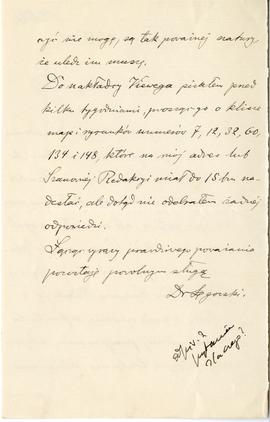 ająć się mogę, są tak poważnej natury
że uledz im muszę.
Do nakładcy Viewega pisałem przed
kilku tygodniami, prosząc go o klisze
map i rysunków numerów 7, 12, 32, 60,
134 i 148, które na mój adres lub
Szanownej Redakcyi miał do 15 bm na-
desłać, ale dotąd nie odebrałem żadnej
odpowiedzi.
wyrazy prawdziwego poważania
pozostaję powolnym sługą
Dr
pytania
dla czego?